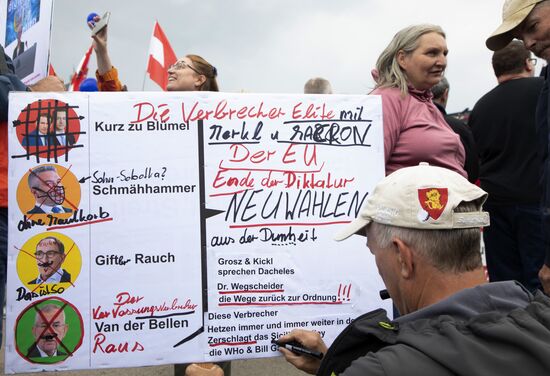 Die Verbrecher Elite mit
Merkl u MACRON
Der EU
Ende der Diktatur
NEUWAHLEN
aus der Dummheit
Kurz zu Blümel
Sohn-Sobotka?
Schmähhammer
ohne Maulkorb
Gifter Rauch
Das also
Der
Verfassungsverbrecher
Van der Bellen
Raus
Grosz & Kickl
sprechen Dacheles
Dr. Wegscheider
die Wege zurück zur Ordnung!!!
Diese Verbrecher
Hetzen immer und immer weiter in
Zerschlagt das
die WHo & Bill G